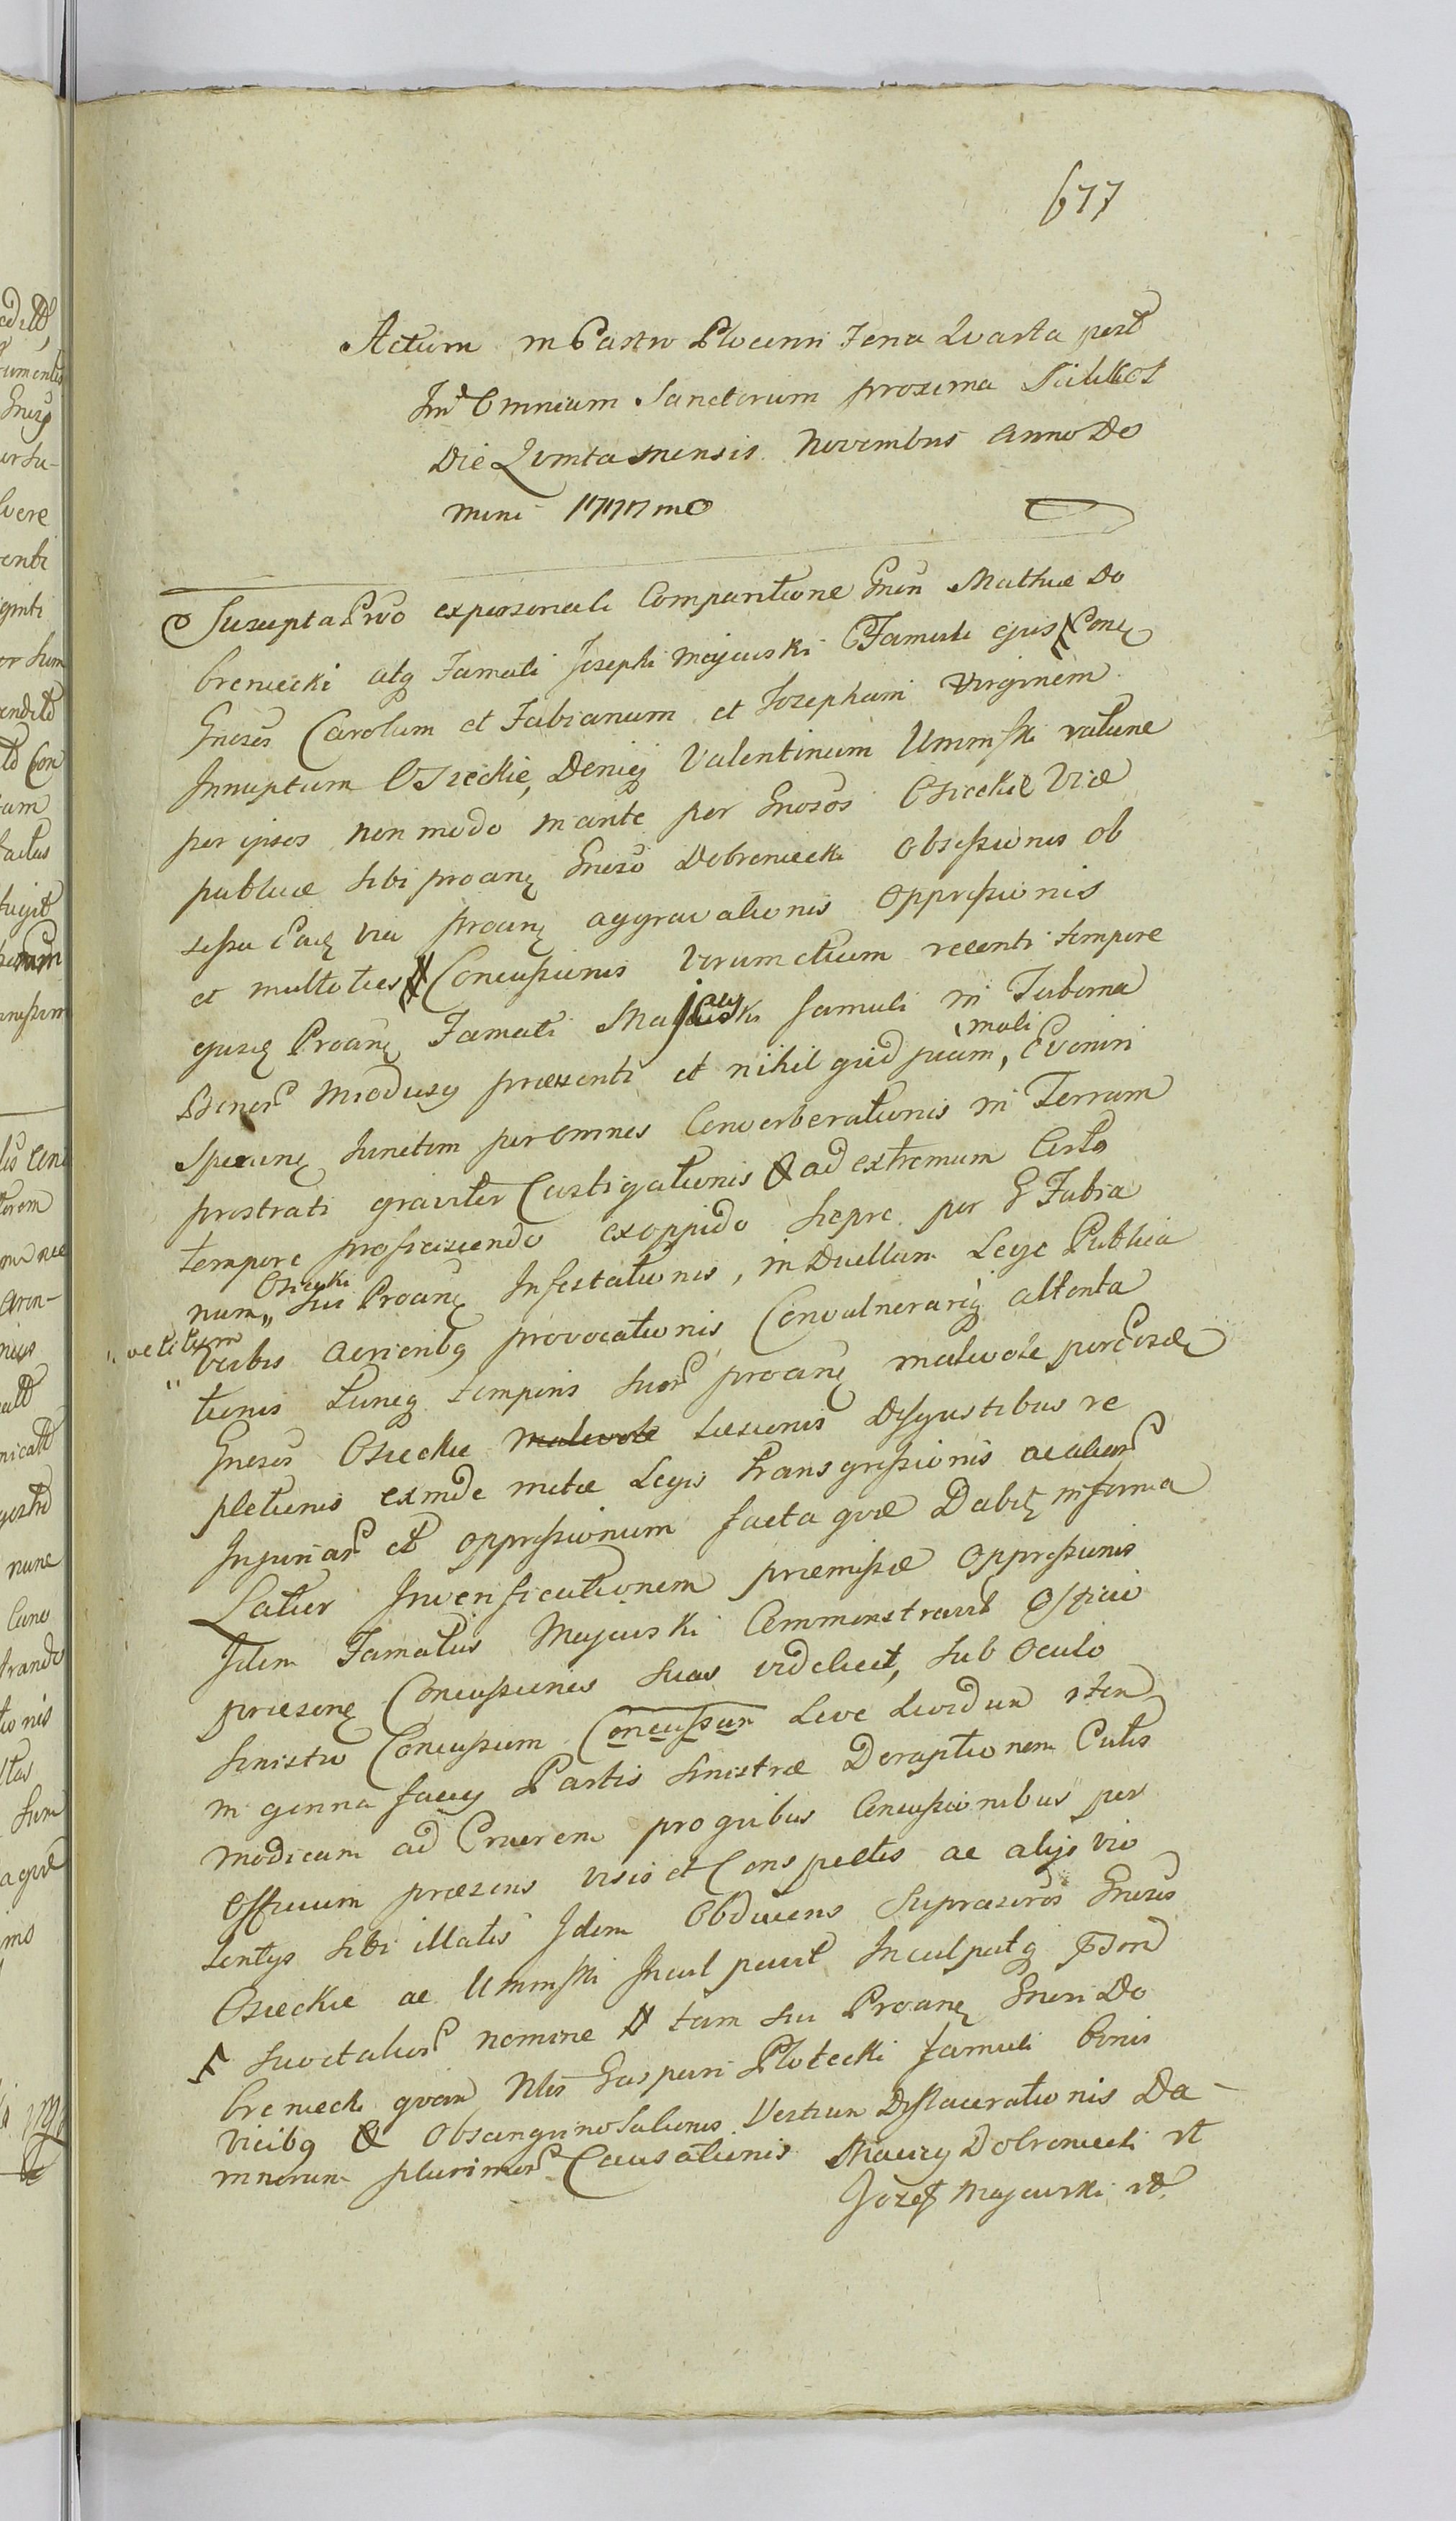 677
Actum in Castro Plocensi Feria Quarta post
Fm Omnium Sanctorum proxima
Die Quinta Mensis Novembris Anno Do
mini 1777mo
Suscepta Pro ex personali Comparitione Gnsi Mathiæ Do
breniecki atq Famati Josephi Majewski Famuli ejus Con
Gnosos Carolum et Fabianum et Josepham Virginem
Innuptam Osieckie, Deniq Valentinum Uminski ratione
per ipsos non modo in ante per Gnosos Osieckie Viæ
publicæ sibi proan Gnoso Dobreniecki Obsessionis ob
sessa Ead via proan aggravationis Oppressionis
et multoties Concussionis Verum etiam recenti tempore
ejusd Proan Famati Majewski famuli in Taberna
Bonor Miodusy præsenti et nihil quid piam, mali Eveniri
Speran Junctim per omnes Converberationis in Terram
prostrati graviter Castigationis & ad extremum Certo
tempore proficiscendo ex oppido Sierpc per G Fabia
num Osiecki Sui Proan Infestationis, in Duellum Lege Publica
vetitum
verbis acrioribq provocationis Convulnerariq attenta
tionis Tuncq temporis suor proan malevole per eosd
Gnosos Osieckie malevole Læsionis Disgustibus re
pletionis exinde metæ Legis Transgressionis ac alior
Injuriar et oppressionum facta quæ Dabit in forma
Latior In verificationem præmissæ Oppressionis
Idem Famatus Majewski Commonstravit Officio
præsen Concussiones suas videlicet, sub Oculo
sinistro Concussum Concussum Leve Lividum Item
in genna faciei Partis sinistræ Deraptionem Cutis
modicam ad Cruorem pro quibus Concussionibus per
Officium præsens visis et Conspectis ac alijs vio
lentijs sibi illatis Idem Obducens Suprascros Gnosos
Osieckie ac Uminski Inculpavit Inculpatq
suo et alior nomine tam sui Proan Gnsi Do
breniecki quam Nlis Gaspari Plotecki famuli binis
vicibq & Obsanguinolationis Vestium Dislacerationis Da-
mnorum plurimor Causationis Maciey Dobreniecki
Jozef Majewski